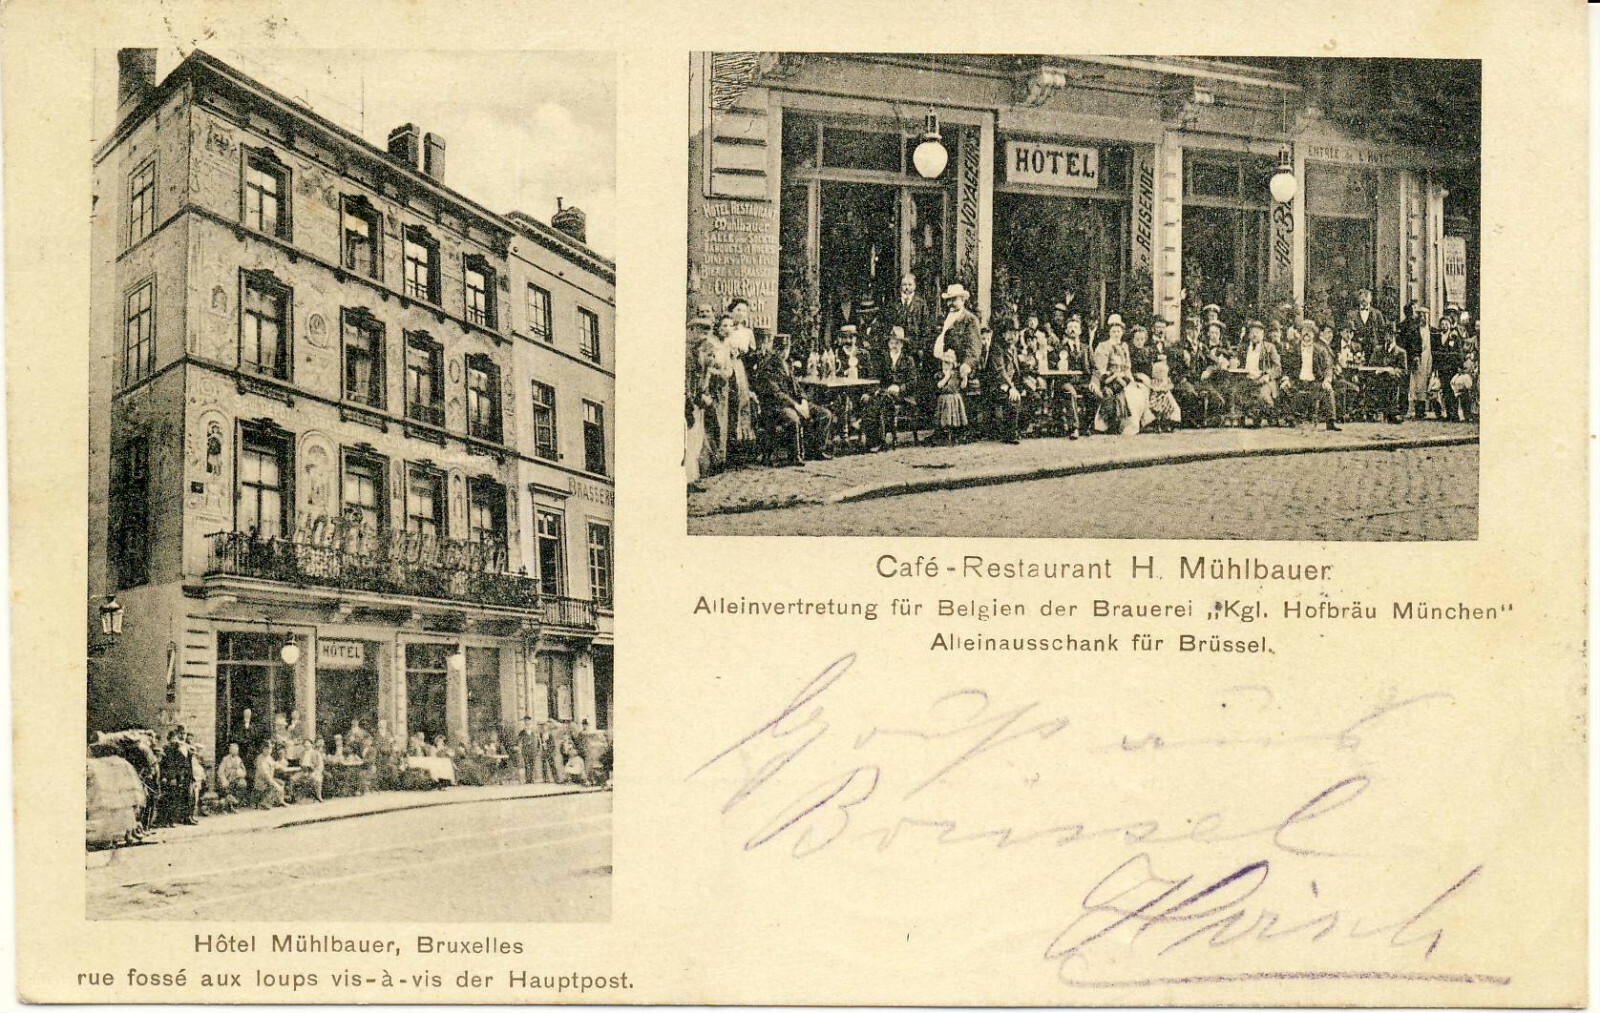 HÔTEL
BRASSERIE
HÔTEL RESTAURANT
Mühlbauer
HÔTEL
VOYAGEURS
REISENDE
HOF-B
ENTRÉE de L'HÔTEL
Café-Restaurant H. Mühlbauer
Alleinvertretung für Belgien der Brauerei „Kgl. Hofbräu München“
Alleinausschank für Brüssel.
Gruß aus
Brüssel
Hirsch
Hôtel Mühlbauer, Bruxelles
rue fossé aux loups vis-à-vis der Hauptpost.